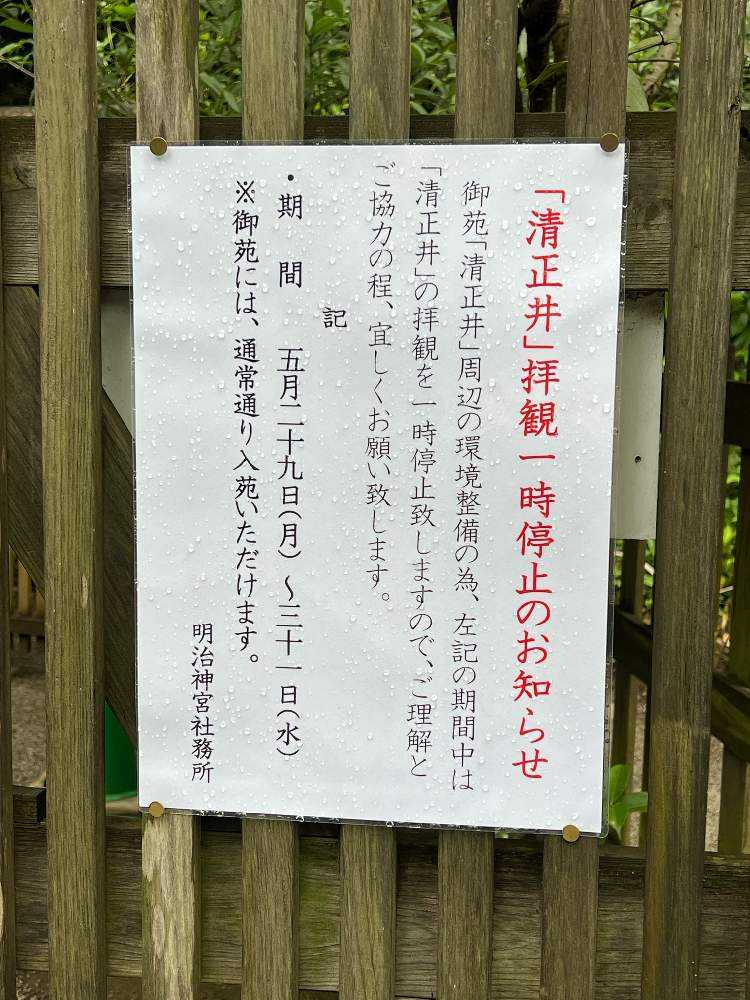 「清正井」拝観一時停止のお知らせ
御苑「清正井」周辺の環境整備の為、左記の期間中は
「清正井」の拝観を一時停止致しますので、ご理解と
ご協力の程、宜しくお願い致します。
記
・期　間　五月二十九日(月)～三十一日(水)
※御苑には、通常通り入苑いただけます。
明治神宮社務所